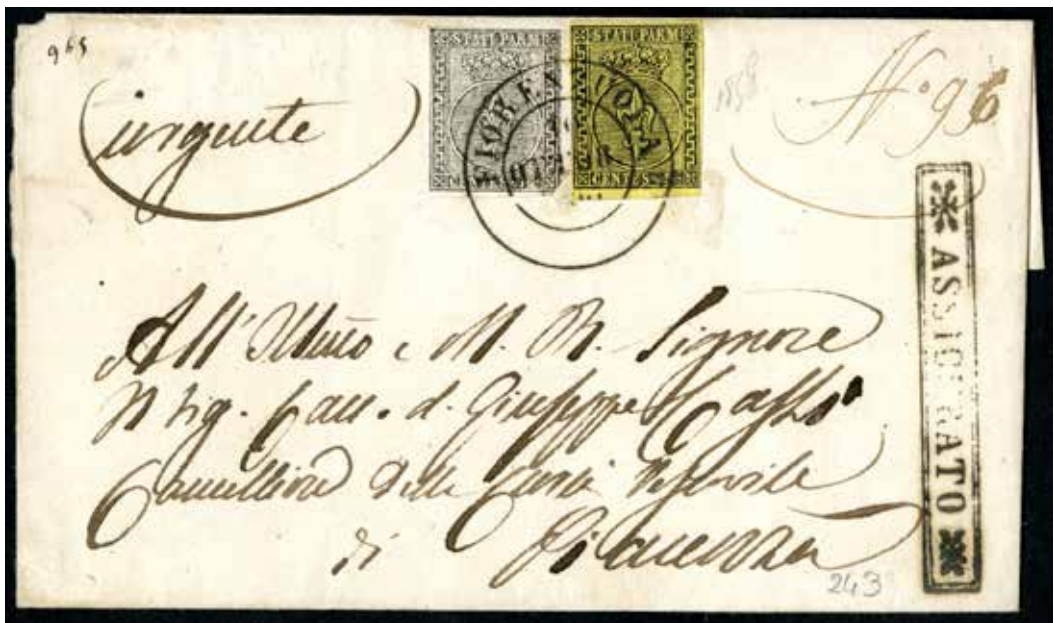 965
urgente
STATI PARM
STATI PARM
FIORENZUOLA
CENTES
CENTES
N.º 96
ASSICURATO
All' Illmo e M. R. Signore
Il Sig. Can. d. Giuseppe
Cancelliere della Curia Vescovile
di Piacenza
243